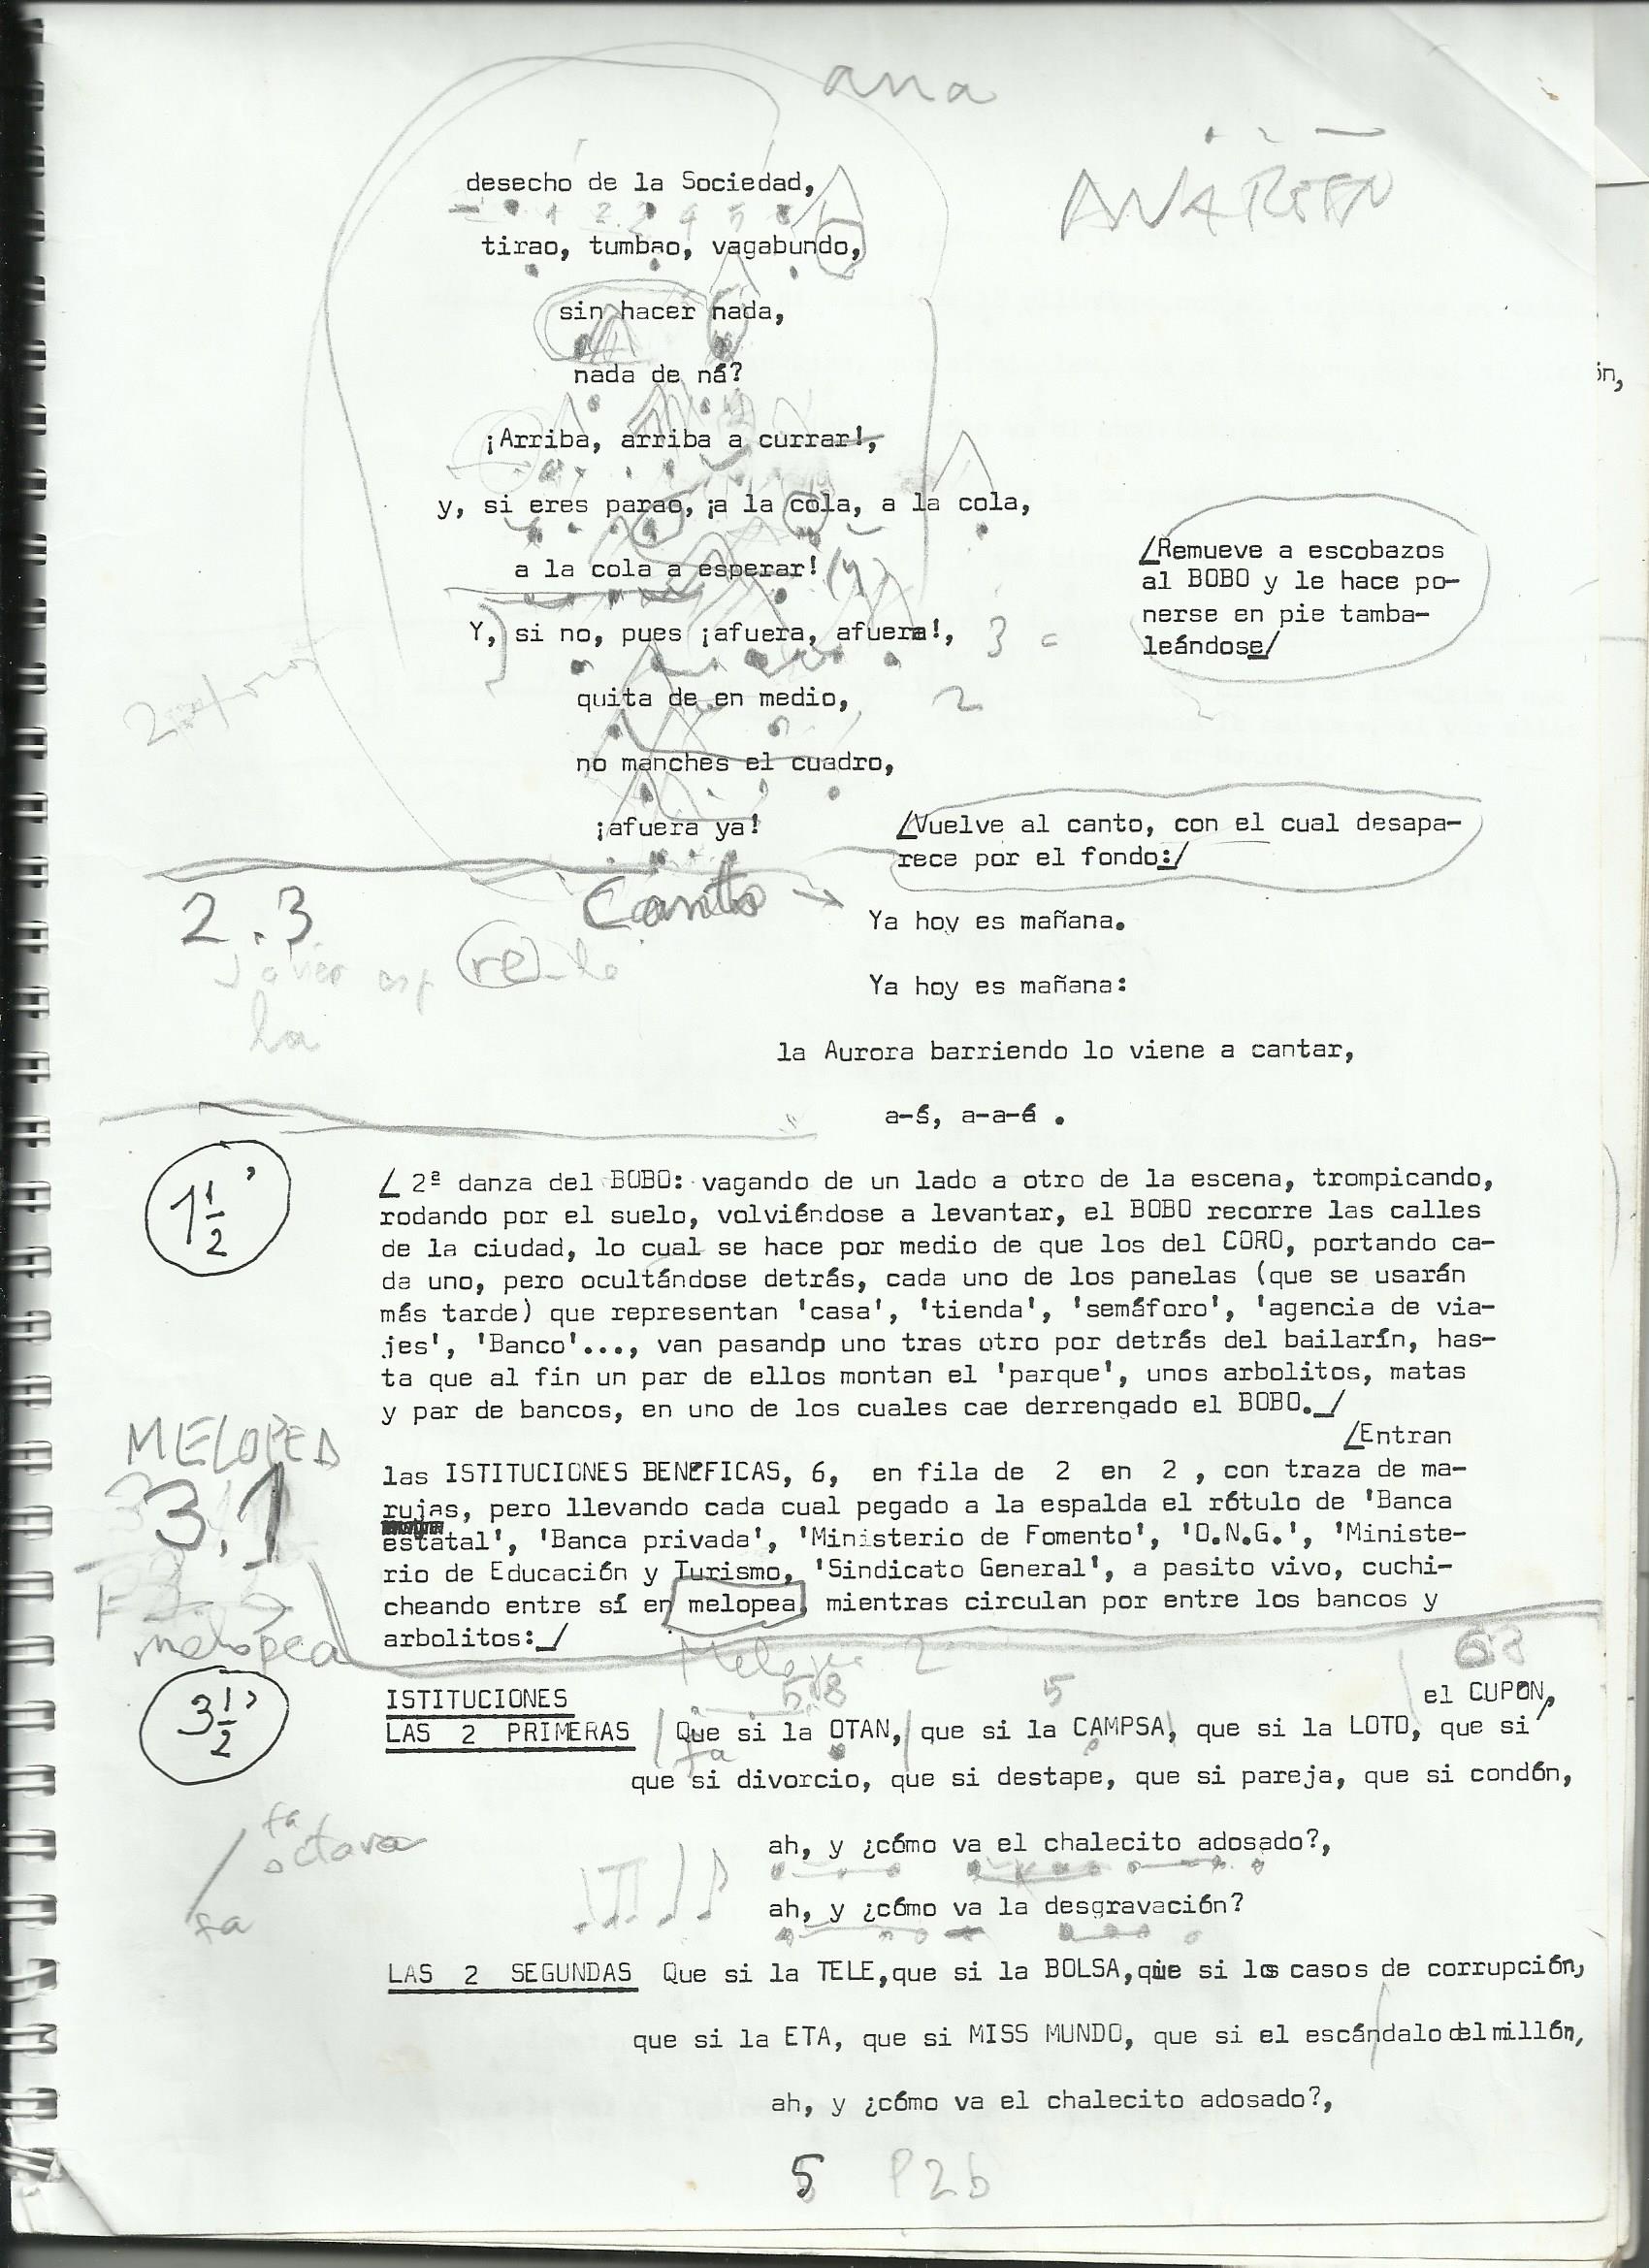 ana
ANA REEN
desecho de la Sociedad,
tirao, tumbao, vagabundo,
sin hacer nada,
nada de ná?
¡Arriba, arriba a currar!,
y, si eres parao, ¡a la cola, a la cola,
a la cola a esperar! (y)
/Remueve a escobazos
al BOBO y le hace po-
nerse en pie tamba-
leándose/
Y, si no, pues ¡afuera, afuera!, 3
quita de en medio, 2
no manches el cuadro,
¡afuera ya!
/Vuelve al canto, con el cual desapa-
rece por el fondo:/
2.3
Canto →
Ya hoy es mañana.
Javier re-la
la
Ya hoy es mañana:
la Aurora barriendo lo viene a cantar,
a-á, a-a-á .
1 1/2 '
/ 2ª danza del BOBO: vagando de un lado a otro de la escena, trompicando,
rodando por el suelo, volviéndose a levantar, el BOBO recorre las calles
de la ciudad, lo cual se hace por medio de que los del CORO, portando ca-
da uno, pero ocultándose detrás, cada uno de los panelas (que se usarán
más tarde) que representan 'casa', 'tienda', 'semáforo', 'agencia de via-
jes', 'Banco'..., van pasandp uno tras otro por detrás del bailarín, has-
ta que al fin un par de ellos montan el 'parque', unos arbolitos, matas
y par de bancos, en uno de los cuales cae derrengado el BOBO./
/Entran
MELOPEA
3.1
melopea
las ISTITUCIONES BENEFICAS, 6, en fila de 2 en 2 , con traza de ma-
rujas, pero llevando cada cual pegado a la espalda el rótulo de 'Banca
estatal', 'Banca privada', 'Ministerio de Fomento', 'O.N.G.', 'Ministe-
rio de Educación y Turismo, 'Sindicato General', a pasito vivo, cuchi-
cheando entre sí en melopea, mientras circulan por entre los bancos y
arbolitos:/
Melopea 2
5
3 1/2 '
ISTITUCIONES
el CUPON,
LAS 2 PRIMERAS Que si la OTAN, que si la CAMPSA, que si la LOTO, que si
fa
que si divorcio, que si destape, que si pareja, que si condón,
fa
octava
fa
ah, y ¿cómo va el chalecito adosado?,
ah, y ¿cómo va la desgravación?
LAS 2 SEGUNDAS Que si la TELE,que si la BOLSA,que si los casos de corrupción,
que si la ETA, que si MISS MUNDO, que si el escándalo del millón,
ah, y ¿cómo va el chalecito adosado?,
5 P2b